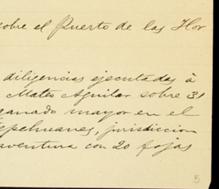 sobre el Puerto de las Hor
diligencias ejecutadas à
Mateo Aguilar sobre 31
ganado mayor en el
epehuanes, jurisdiccion
aventura con 20 fojas
5